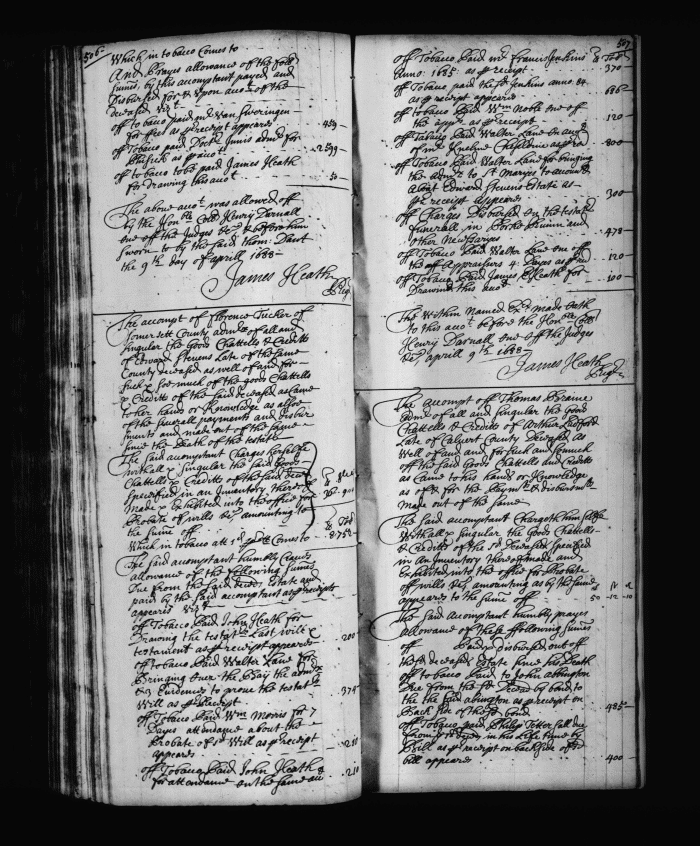 506
Which in tobacco Comes to
And Prayes allowance off the foll
Sumes, by this accomptant payed and
Disbursed for & upon acco: off the
deceased Viz:t
off to bacco paid mr Van Sweringen
for ffees as p receipt appeares 459
off Tobacco paid Doctr Innis admr for
Phisick as p acco:t 2599
off to bacco to be paid James Heath
for Drawing this aco:t 50
The above aco:t was allowed off
by the Honble Coll Henry Darnall
one off the Judges &c & before him
Sworn to by the Said Thom: Dant
the 9th day of aprill 1688
James Heath
Regr
The accompt of fflorence Tucker of
Somersett County admx of all and
Singular the Goods Chattells & Creditts
of Edward Stevens Late of the same
County deceased as well of and for
Such & soe much of the goods Chattells
& Creditts of the Said deceased as Came
to her hands or Knowledge as also
of the funerall payments and Disbur
sments and made out of the same
since the Death of the testator
The Said accomptant Charges herselfe
withall & Singular the Said Goods
Chattells & Creditts of the Said deced
Specified in an Inventory thereof
Made & Exhibited into the office for
Probate of wills &c amounting to
the sume off
Which in tobacco att 1d p lb Comes to 8752
The Said accomptant humbly Craves
allowance of the following Sumes
Due from the Said deced: Estate and
paid by the Said accomptant as p receipts
appeares Viz:t
off Tobacco Paid John Heath for
Drawing the testat:rs Last will &
testament as p receipt appeares 200
off tobacco Paid Walter Lane for
Bringing Over the Bay the admx
& 3 Evidences to prove the testat:rs
Will as p Receipt 374
off Tobacco Paid Wm Morris for 7
Dayes attendance about the
Probate of sd Will as p receipt
appeares 210
off Tobacco Paid John Heath
for attendance on the same acc 210
507
off Tobacco Paid mr Francis Jenkins lb Tobo
Anno: 1685 as p receipt 370
off Tobacco paid the sd Jenkins anno 84
as p receipt appeares 686
off tobacco Paid Wm Noble one of
the apprs as p receipt 120
off Tobacco Paid Walter Lane on acco
of mr 800
off Tobacco Paid Walter Lane for bringing
the admx to St Maryes to account
about Edward Stevens Estate as
p receipt appeares 300
off Charges Disbursed on the testat:rs
funerall in and
other Necessaryes 478
off tobacco Paid Walter Lane one off
the Appraisers 4 Dayes as p rect 120
off Tobacco Paid James Heath for
Drawing this aco:t 100
The Within Named Ex:x made oath
to this aco:t before the Honble Coll
Henry Darnall one off the Judges
&c, aprill 9th 1688
James Heath
Regr
The Accompt off Thomas
admr of all and Singular the Goods
Chattells & Creditts of Arthur
Late of Calvert County Deceased As
Well of and for Such and Somuch
off the Said Goods Chattells and Creditts
as Came to his hands or Knowledge
as of & for the Paym:ts & disbursmts
Made out of the same
The Said accomptant Chargeth himselfe
Withall & Singular the Goods Chattells
& Creditts of the sd Deceased Specified
in An Inventory thereof made and
Exhibited into the office for Probate
off wills &c, amounting as by the same
appeares to the Sume off 50 - 12 - 10
The Said Accomptant humbly prayes
Allowance of these following Sumes
off Paid & disbursed out off
the sd deceaseds Estate since his Death
off to bacco Paid to John abbington
Due from the sd Deced by bond to
the Said abington as p receipt on
Back Side of the sd bond 4850
off Tobacco paid Philip
from ye deced in his Life time by
Bill as p receipt on backside of sd
bill appeares 400